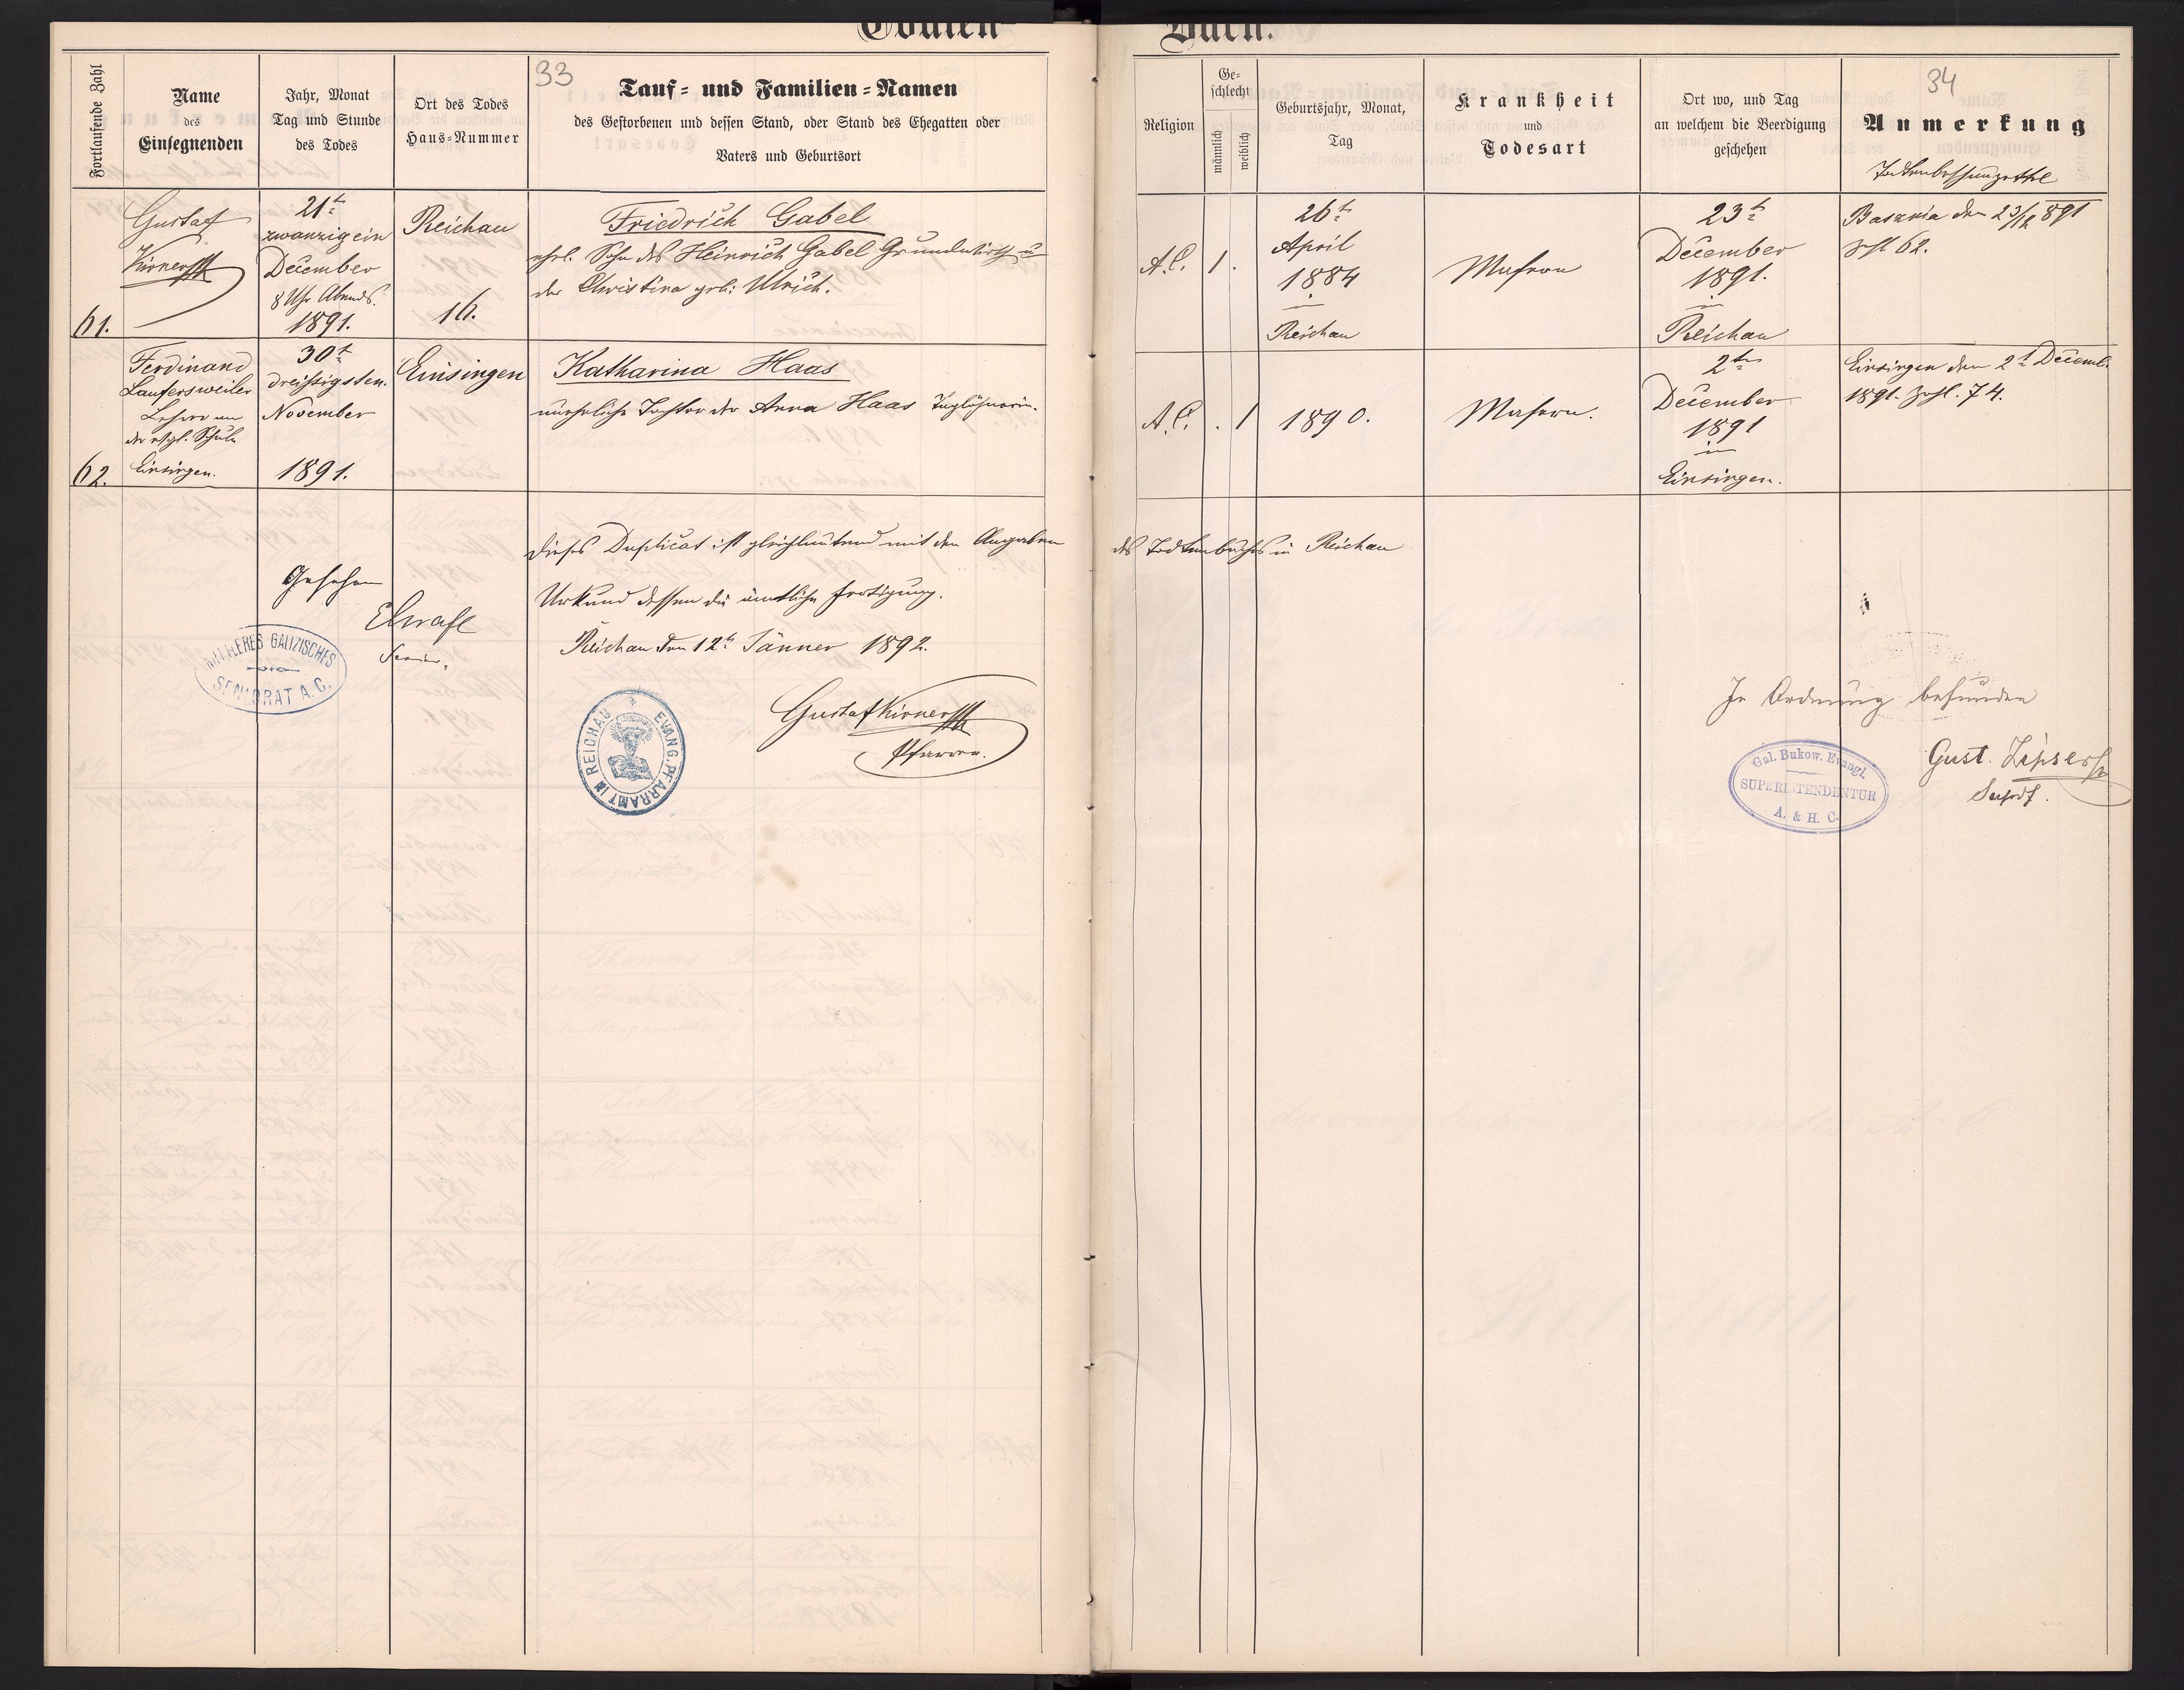 Todten-Buch.
33
34
Fortlaufende Zahl
Name
des
Einsegnenden
Jahr, Monat
Tag und Stunde
des Todes
Ort des Todes
Haus-Nummer
Tauf- und Familien-Namen
des Gestorbenen und dessen Stand, oder Stand des Ehegatten oder
Vaters und Geburtsort
Religion
Ge-
schlecht
männlich
weiblich
Geburtsjahr, Monat,
Tag
Krankheit
und
Todesart
Ort wo, und Tag
an welchem die Beerdigung
geschehen
Anmerkung
61.
Gustaf
21t
zwanzig ein
December
8 Uhr Abends.
1891.
Reichau
16.
Friedrich Gabel
ehel. Sohn des Heinrich Gabel Grundwirth u
der Christina geb: Ulrich.
A.C.
1.
26t
April
1884
in
Reichau
Masern
23t
December
1891.
in
Reichau
Basznia den 23/12 891
Zhl 62.
62.
Ferdinand
Laufersweiler
Lehrer an
der evgl. Schule
Einsingen.
30t
dreissigsten.
November
1891.
Einsingen
Katharina Haas
uneheliche Tochter der Anna Haas Taglöhnerin.
A.C.
. 1
1890.
Masern.
2ten
December
1891
in
Einsingen.
Einsingen den 2t Decemb.
1891. Zhl. 74.
Dieses Duplicat ist gleichlautend mit den Angaben des Todtenbuches in Reichau
Urkund dessen die ämtliche Fertigung.
Reichau den 12t Jänner 1892.
Gesehen
Senior.
MITTLERES GALIZISCHES
SENIORAT A. C.
EVANG. PFARRAMT IN REICHAU
Gustaf Kirner
Pfarrer.
In Ordnung befunden
Gal. Bukow. Evangl.
SUPERINTENDENTUR
A. & H. C.
Gust. Zipser